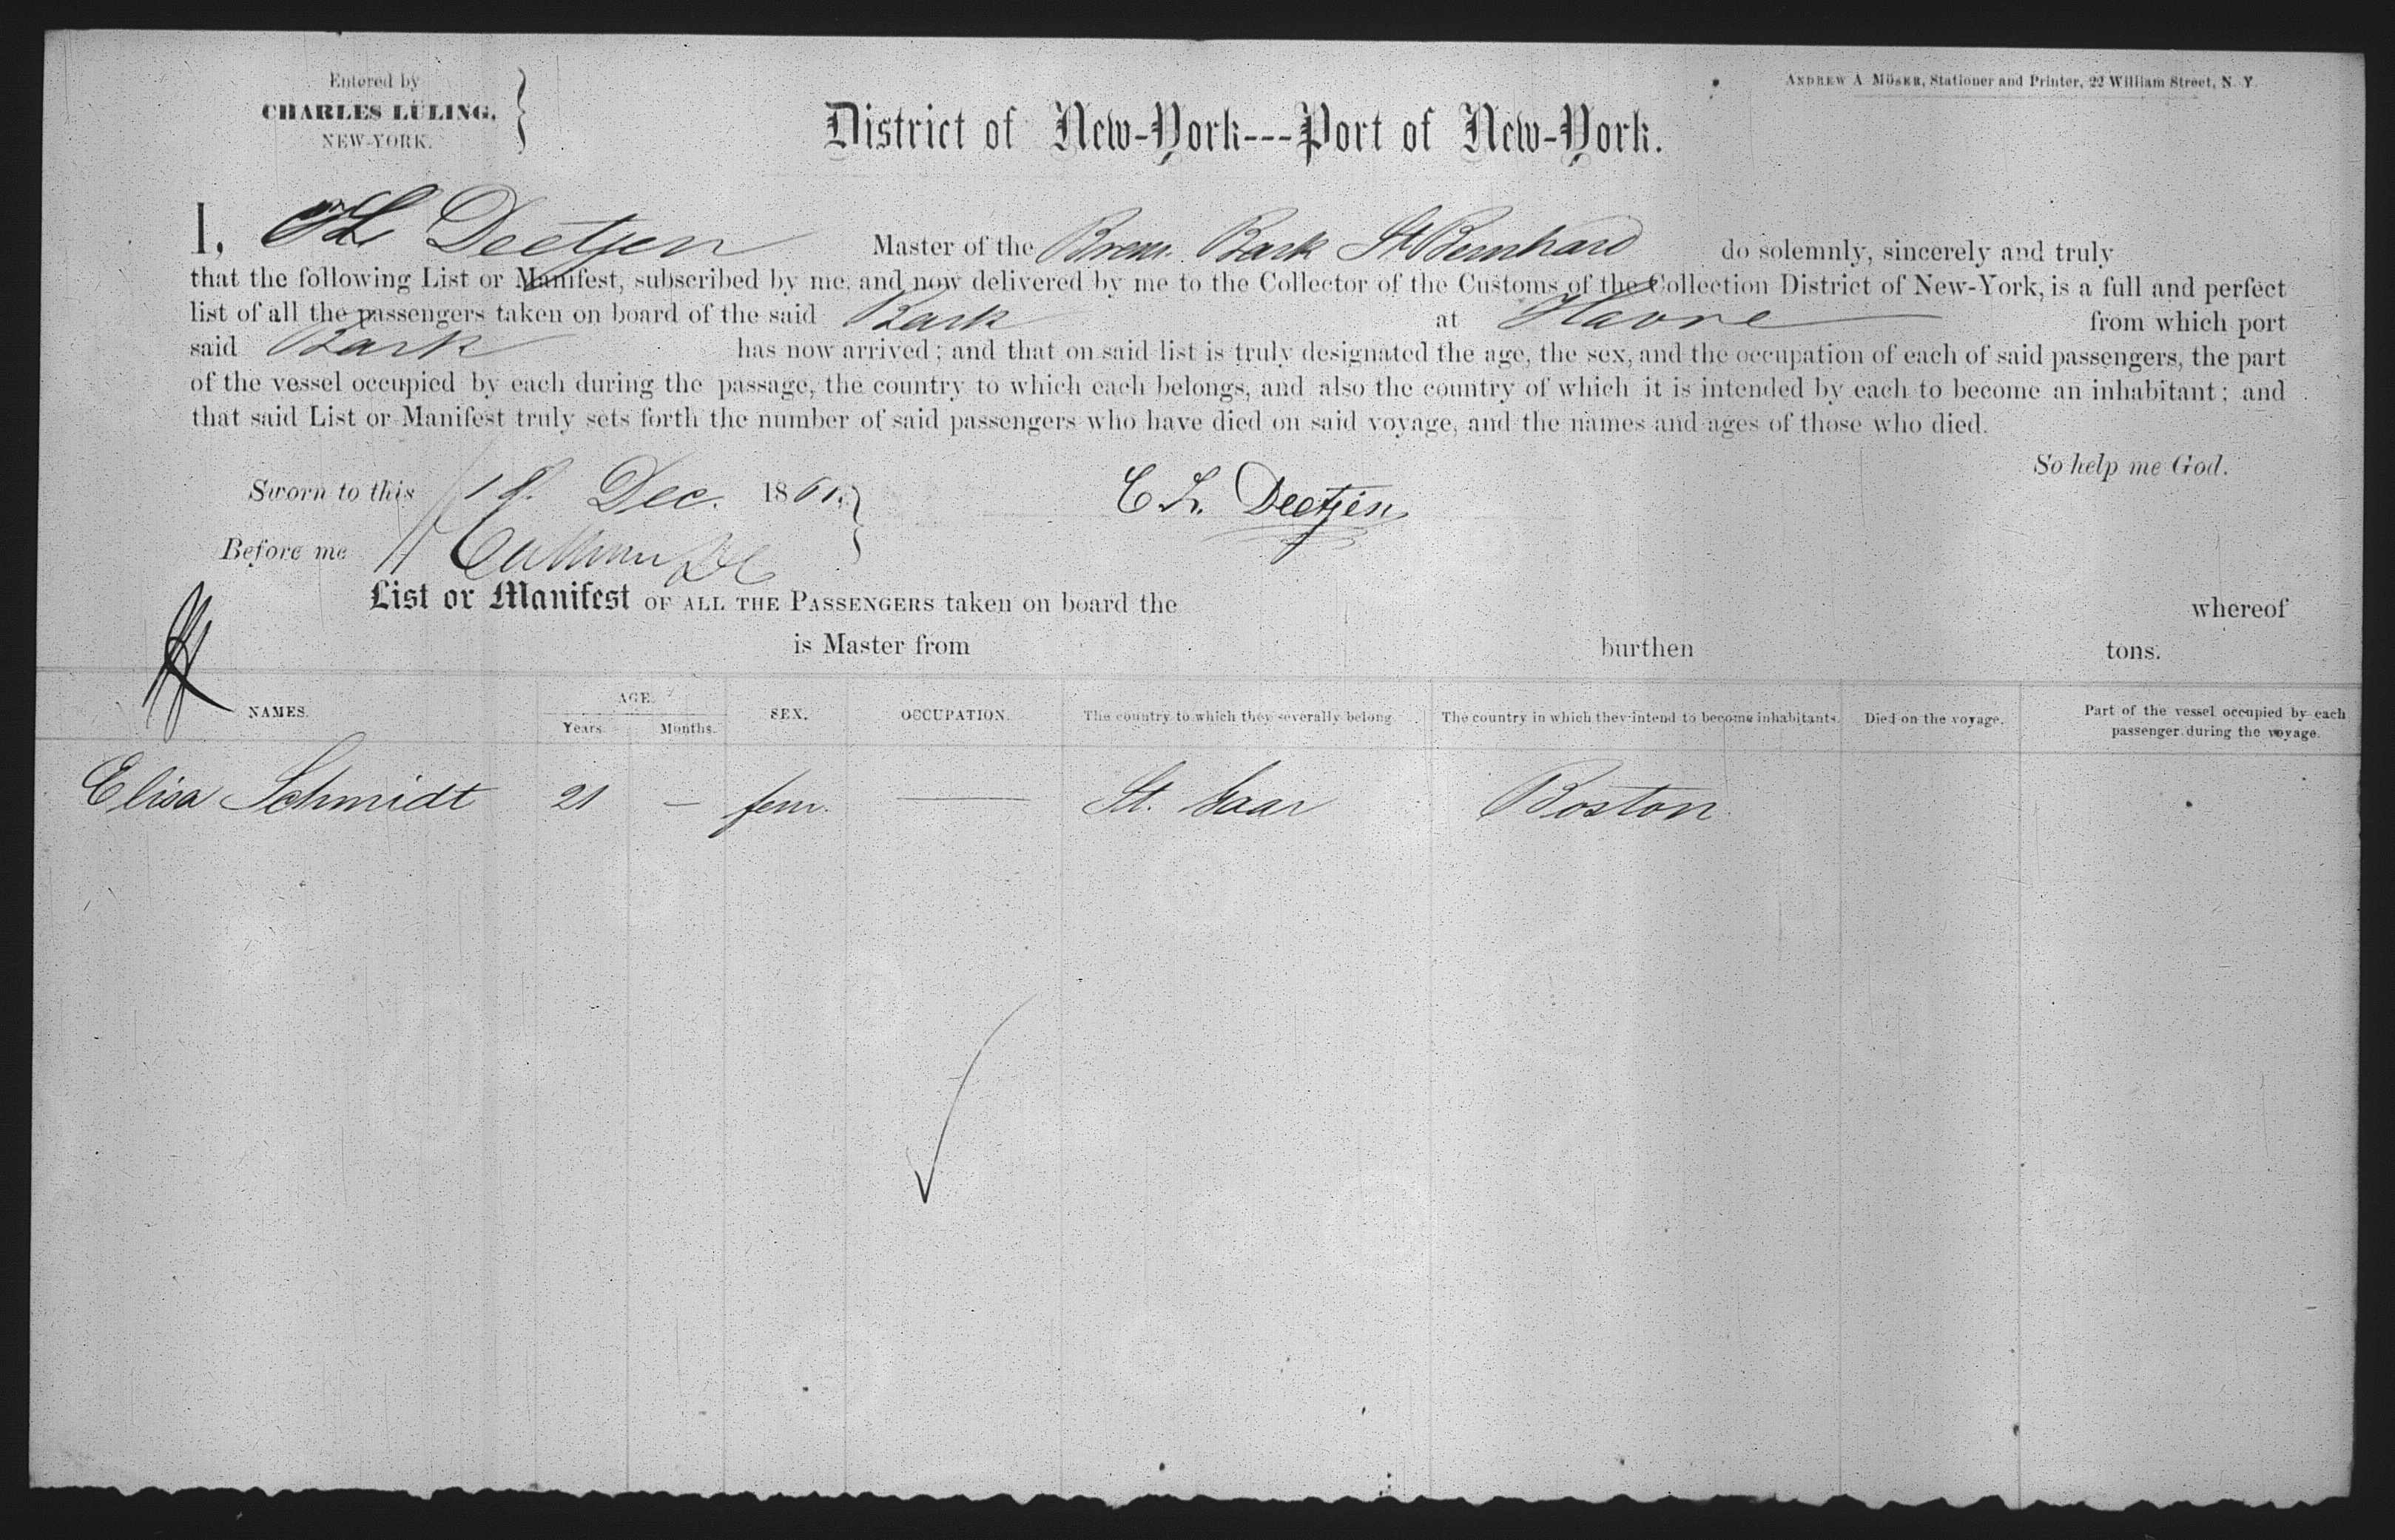 Entered by
CHARLES LULING,
NEW-YORK.
ANDREW A MÖSER, Stationer and Printer, 22 William Street, N. Y.
District of New-York---Port of New-York.
I, Deetjen Master of the Brem. Bark St Bernhard do solemnly, sincerely and truly
that the following List or Manifest, subscribed by me, and now delivered by me to the Collector of the Customs of the Collection District of New-York, is a full and perfect
list of all the passengers taken on board of the said Bark at Havre from which port
said Bark has now arrived; and that on said list is truly designated the age, the sex, and the occupation of each of said passengers, the part
of the vessel occupied by each during the passage, the country to which each belongs, and also the country of which it is intended by each to become an inhabitant; and
that said List or Manifest truly sets forth the number of said passengers who have died on said voyage, and the names and ages of those who died.
So help me God.
Sworn to this Dec. 1861. C L. Deetjen
Before me
List or Manifest OF ALL THE PASSENGERS taken on board the whereof
is Master from burthen tons.
NAMES. AGE. Years. Months. SEX. OCCUPATION. The country to which they severally belong. The country in which they intend to become inhabitants. Died on the voyage. Part of the vessel occupied by each passenger during the voyage.
Elisa Schmidt 21 — fem. — St. Goar Boston